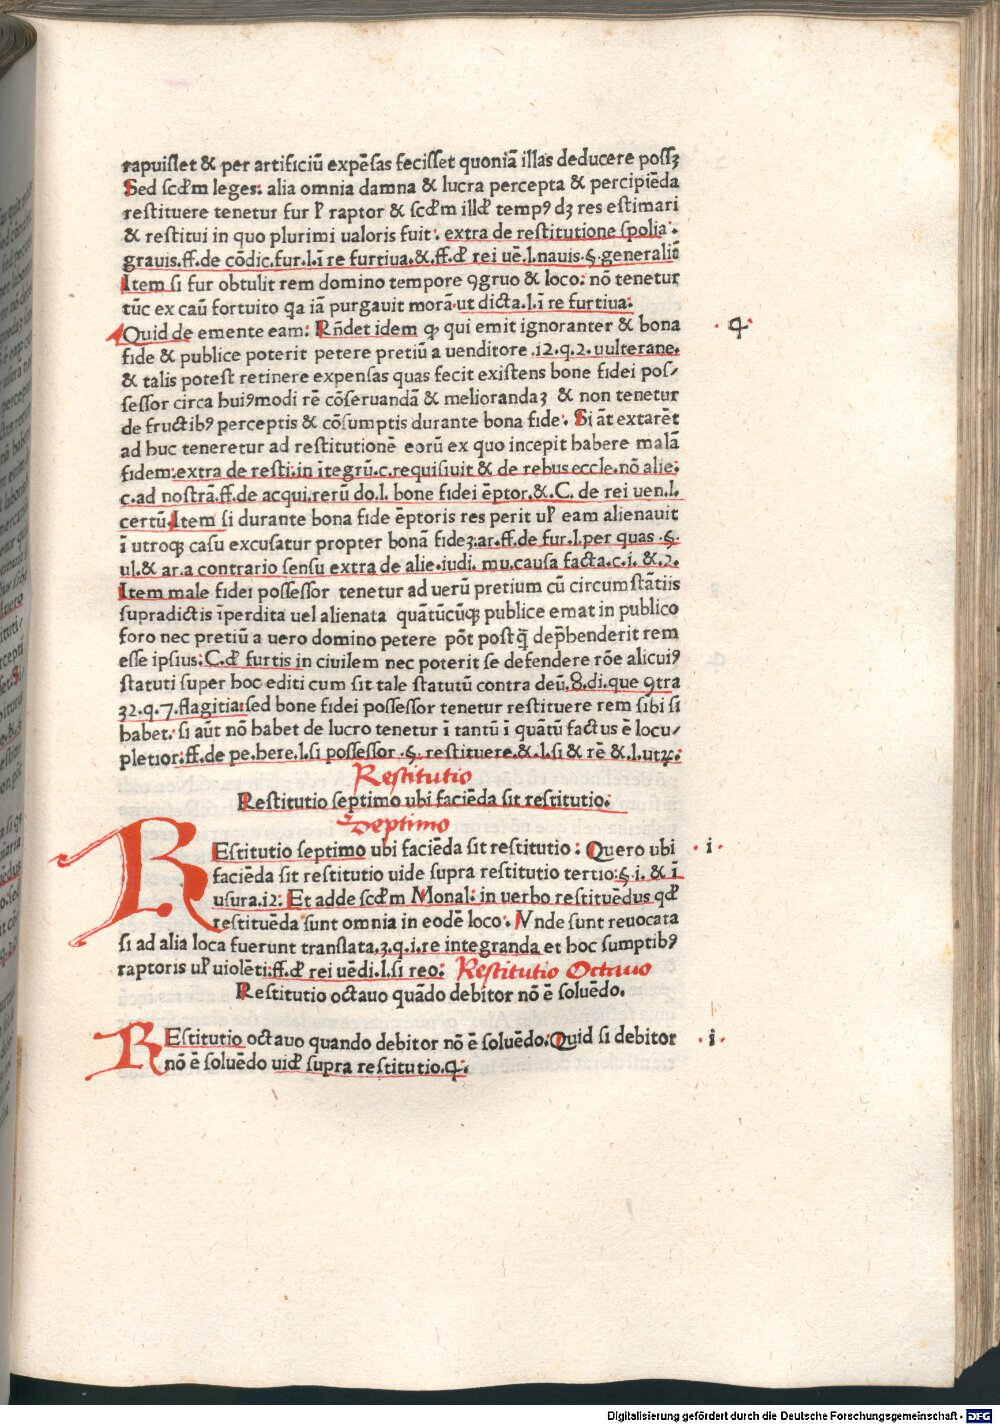 rapuisset & per artificiū expēsas fecisset quoniā illas deducere possꝫ
Sed scđm leges: alia omnia damna & lucra percepta & percipiēda
restituere tenetur fur ł raptor & scđm illđ tempꝰ dꝫ res estimari
& restitui in quo plurimi ualoris fuit. extra de restitutione spolia.
grauis.ff.de cōdic.fur.l.ī re furtiua.&.ff.đ rei uē.l.nauis.§.generalit̄
Item si fur obtulit rem domino tempore ꝯgruo & loco: nō tenetur
tūc ex caū fortuito qa iā purgauit morā.ut dicta.l.ī re furtiua:
Quid de emente eam: Rn̄det idem ꝙ qui emit ignoranter & bona
4
fide & publice poterit petere pretiū a uenditore .12.q.2. uulterane.
& talis potest retinere expensas quas fecit existens bone fidei pos/
sessor circa huiꝰmodi rē cōseruandā & meliorandaꝫ & non tenetur
de fructibꝰ perceptis & cōsumptis durante bona fide. Si āt extarēt
ad huc teneretur ad restitutionē eorū ex quo incepit habere malā
fidem:extra de resti:in ītegrū.c.requisiuit & de rebus eccle.nō alie.
c.ad nostrā.ff.de acqui.rerū do.l. bone fidei ēptor.&.C. de rei uen.l.
certū.Item si durante bona fide ēptoris res perit uł eam alienauit
ī utroqꝫ casu excusatur propter bonā fideꝫ.ar.ff.de fur.l.per quas .§.
ul.& ar.a contrario sensu extra de alie.iudi. mu.causa facta.c.i. &.2.
Item male fidei possessor tenetur ad uerū pretium cū circumstatiis
supradictis īperdita uel alienata quātūcūqꝫ publice emat in publico
foro nec pretiū a uero domino petere pōt postq̄ᷓ dep̄henderit rem
esse ipsius:C.đ furtis in ciuilem nec poterit se defendere rōe alicuiꝰ
statuti super hoc editi cum sit tale statutū contra deū.8.di.que ꝯtra
32.q.7.flagitia:sed bone fidei possessor tenetur restituere rem sibi si
habet. si aūt nō habet de lucro tenetur ī tantū ī quātū factus ē locu/
pletior:ff.de pe.here.l.si possessor .§. restituere.&.l.si & rē &.l.utꝝ:
Restitutio
Restitutio septimo ubi faciēda sit restitutio:
Septimo
REstitutio septimo ubi faciēda sit restitutio: Quero ubi
.i.
faciēda sit restitutio uide supra restitutio tertio:§.i. & ī
usura.12: Et adde scđm Monal: in uerbo restituēdus qđ
restituēda sunt omnia in eodē loco. Vnde sunt reuocata
si ad alia loca fuerunt translata.3.q.i.re integranda et hoc sumptibꝰ
raptoris uł uiolēti:ff.đ rei uēdi.l.si reo: Restitutio Octauo
Restitutio octauo quādo debitor nō ē soluēdo.
REstitutio octauo quando debitor nō ē soluēdo:Quid si debitor
.i.
nō ē soluēdo uiđ supra restitutio.4.
Digitalisierung gefördert durch die Deutsche Forschungsgemeinschaft - DFG